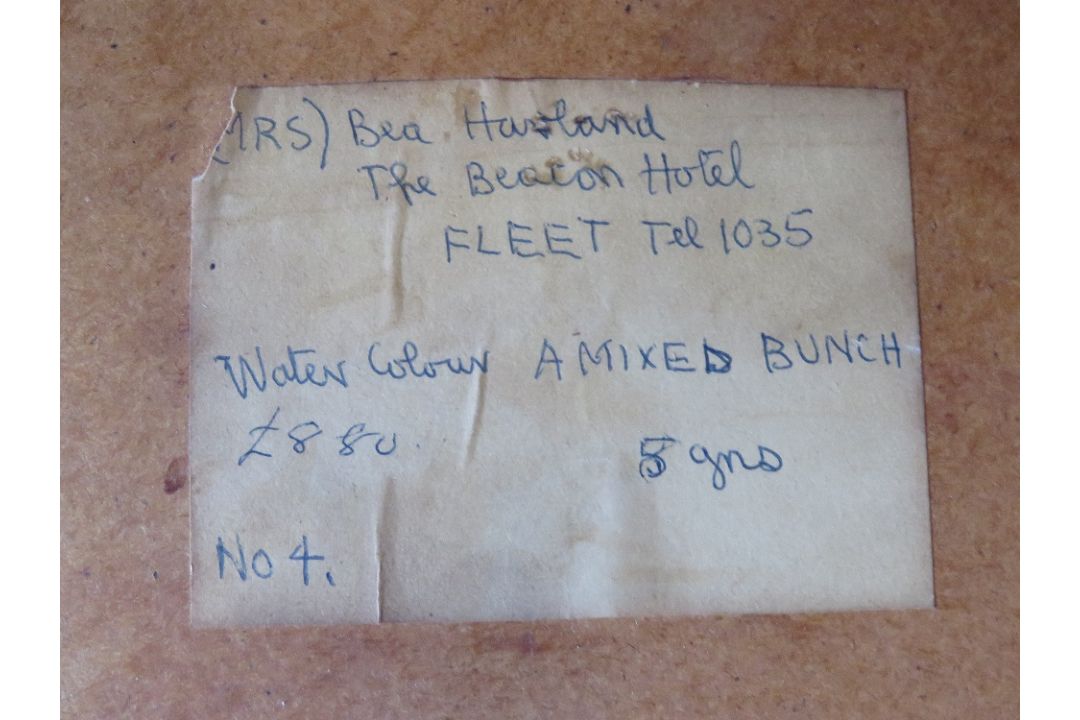 (MRS) Bea Harland
The Beacon Hotel
FLEET Tel 1035
Water Colour A MIXED BUNCH
£8 80. 5 gns
No 4.